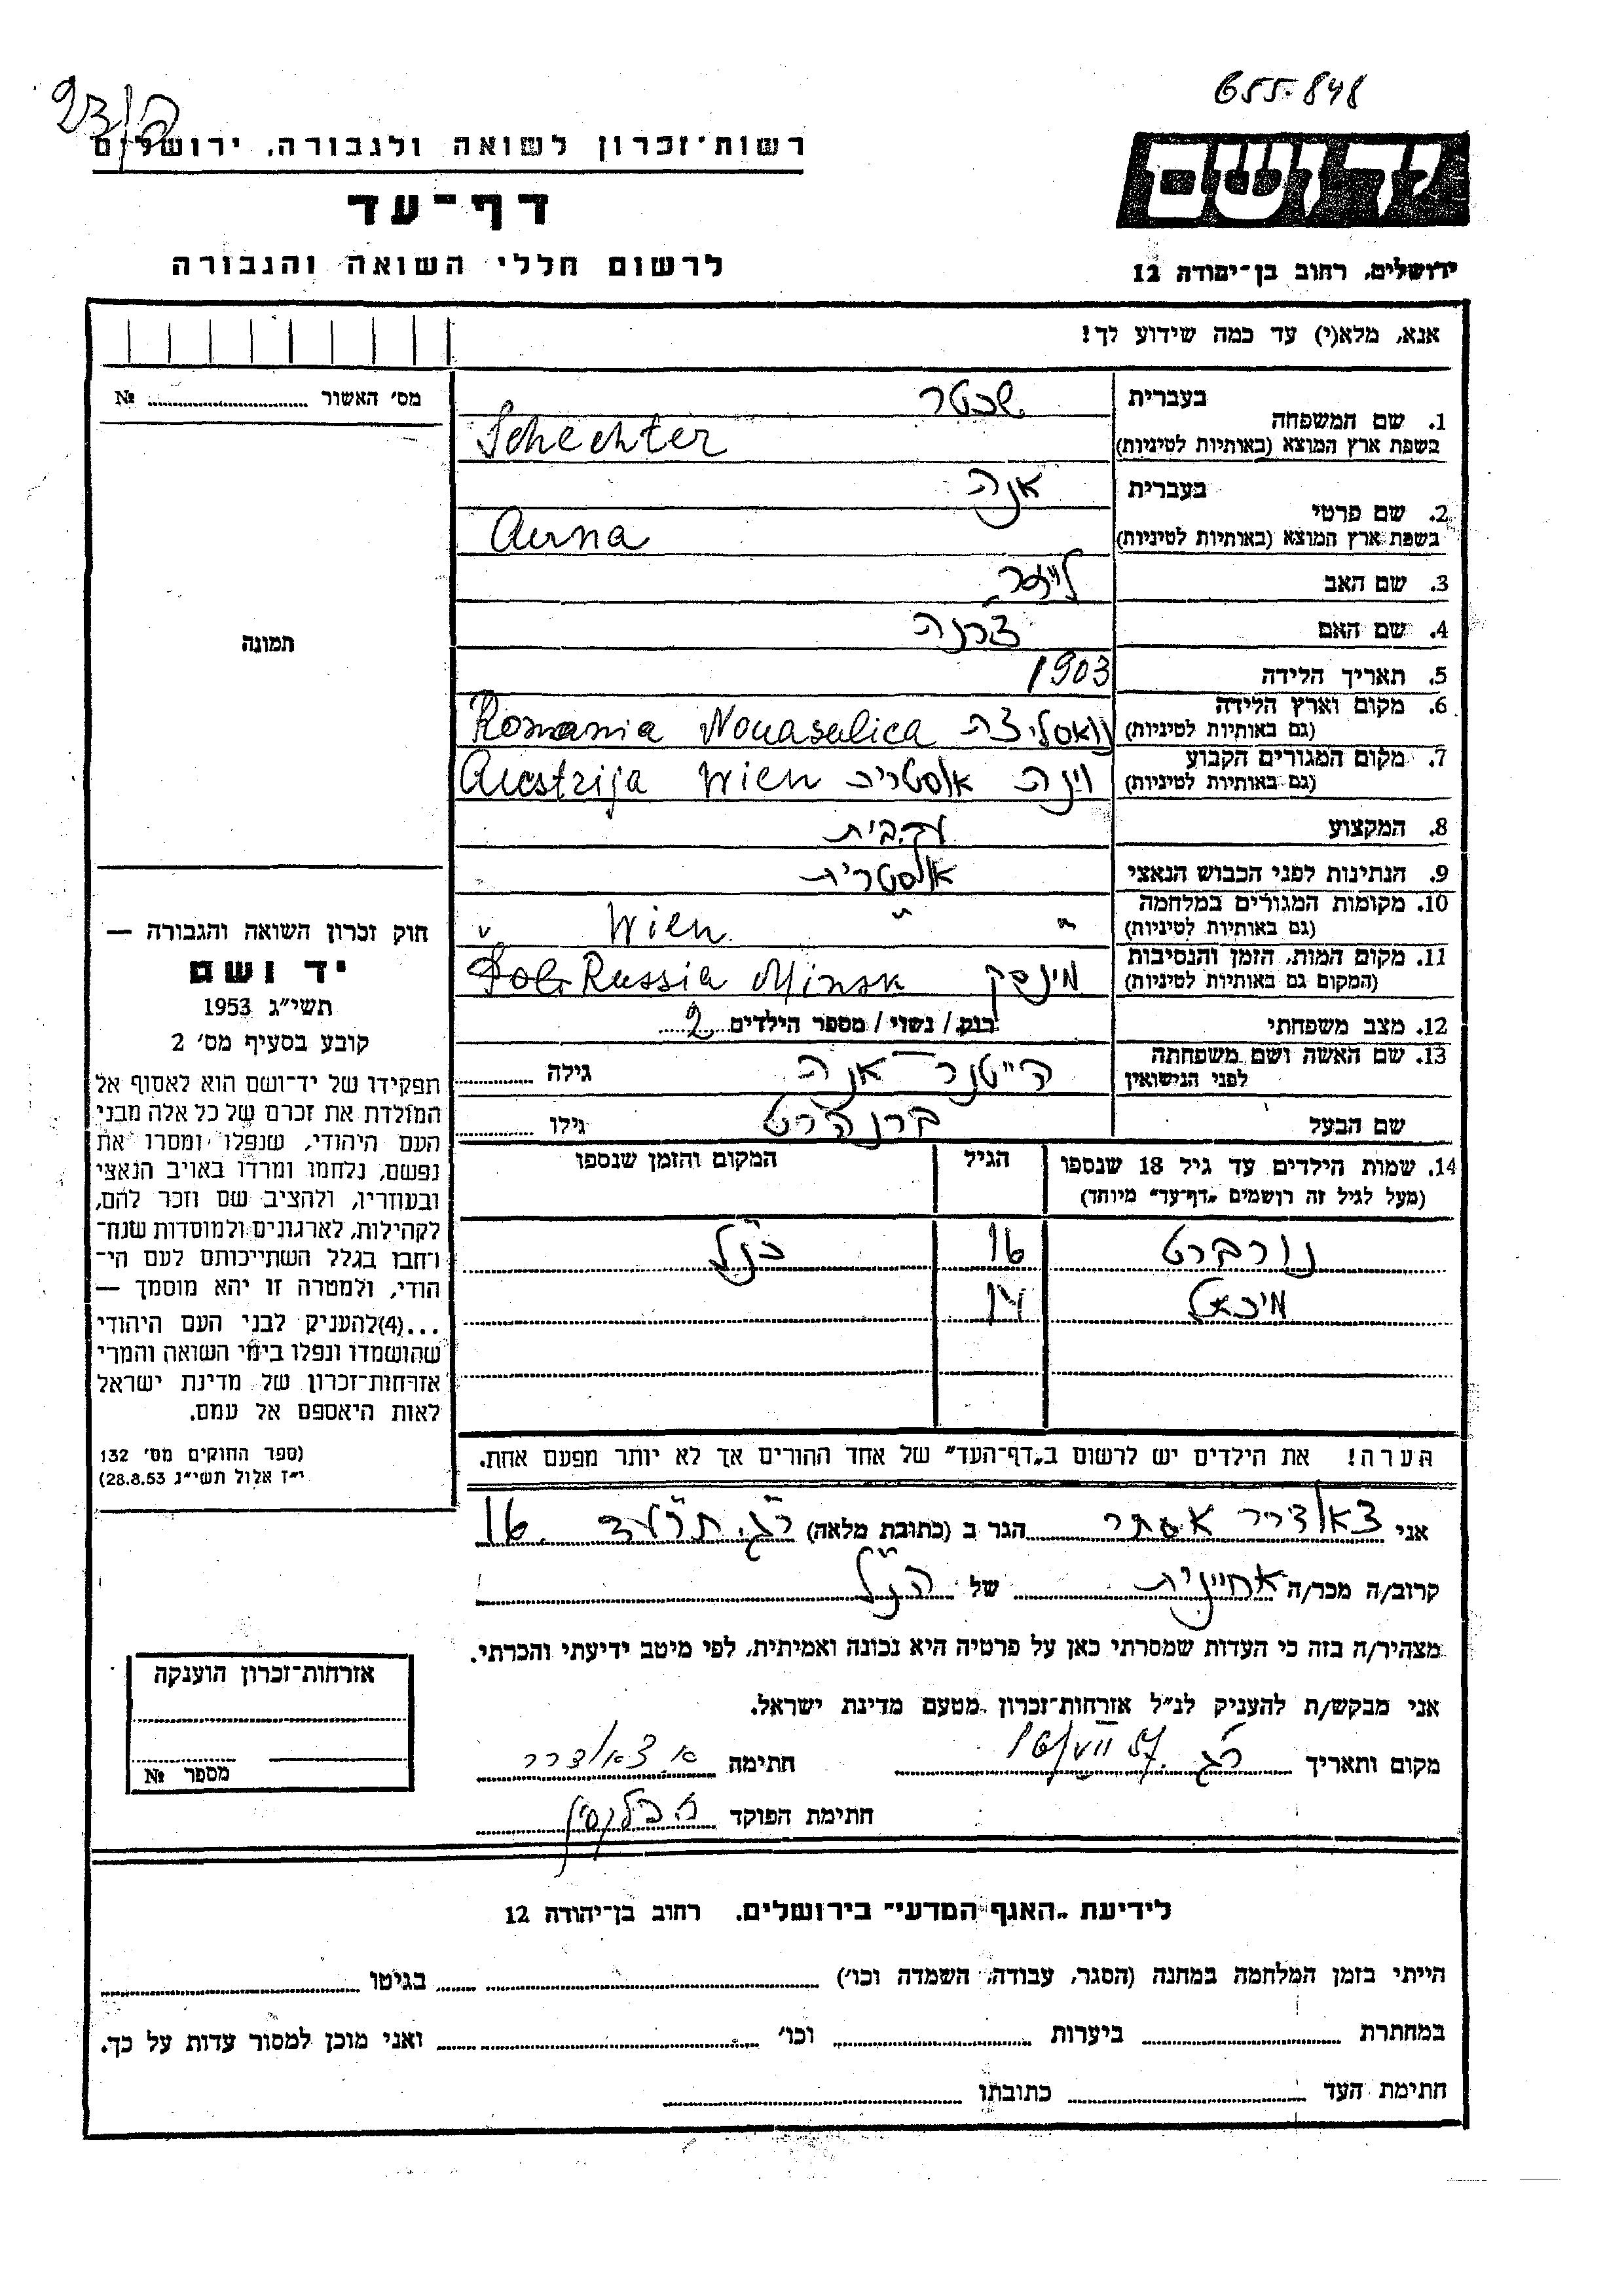 655.848
רשות-זכרון לשואה ולגבורה, ירושלים
דף-עד
לרשום חללי השואה והגבורה
יד ושם
ירושלים, רחוב בן-יהודה 12
אנא, מלא(י) עד כמה שידוע לך!
מס׳ האשור № 
תמונה
1. שם המשפחה
בעברית שכטר
בשפת ארץ המוצא (באותיות לטיניות) Schechter
2. שם פרטי
בעברית אנה
בשפת ארץ המוצא (באותיות לטיניות) Anna
3. שם האב
4. שם האם
5. תאריך הלידה 1903
6. מקום וארץ הלידה
(גם באותיות לטיניות) Romania Nouasalica
7. מקום המגורים הקבוע
(גם באותיות לטיניות) וינה אוסטריה Wien Austrija
8. המקצוע עקבית
9. הנתינות לפני הכבוש הנאצי אוסטרית
10. מקומות המגורים במלחמה
(גם באותיות לטיניות) " " Wien "
11. מקום המות, הזמן והנסיבות
(המקום גם באותיות לטיניות) מינסק Minsk Russia
12. מצב משפחתי רווק / נשוי / מספר הילדים 2
13. שם האשה ושם משפחתה
לפני הנישואין אנה גילה
שם הבעל ברנהרט גילו
14. שמות הילדים עד גיל 18 שנספו הגיל המקום והזמן שנספו
(מעל לגיל זה רושמים „דף-עד״ מיוחד)
נורברט 16 כנ״ל
מיכאל 14
הערה! את הילדים יש לרשום ב„דף-העד״ של אחד ההורים אך לא יותר מפעם אחת.
חוק זכרון השואה והגבורה —
יד ושם
תשי״ג 1953
קובע בסעיף מס׳ 2
תפקידו של יד-ושם הוא לאסוף אל
המולדת את זכרם של כל אלה מבני
העם היהודי, שנפלו ומסרו את
נפשם, נלחמו ומרדו באויב הנאצי
ובעוזריו, ולהציב שם וזכר להם,
לקהילות, לארגונים ולמוסדות שנח-
רחבו בגלל השתייכותם לעם הי-
הודי, ולמטרה זו יהא מוסמך —
...(4)להעניק לבני העם היהודי
שהושמדו ונפלו בימי השואה והמרי
אזרחות-זכרון של מדינת ישראל
לאות היאספם אל עמם.
(ספר החוקים מס׳ 132
י״ז אלול תשי״ג 28.8.53)
אני אסתר הגר ב (כתובת מלאה) ר״ג 16
קרוב/ה מכר/ה אחיינית של הנ״ל
מצהיר/ה בזה כי העדות שמסרתי כאן על פרטיה היא נכונה ואמיתית, לפי מיטב ידיעתי והכרתי.
אני מבקש/ת להעניק לנ״ל אזרחות-זכרון מטעם מדינת ישראל.
מקום ותאריך ר״ג 16/VII 57 חתימה
חתימת הפוקד
אזרחות-זכרון הוענקה
מספר №
לידיעת „האגף המדעי״ בירושלים. רחוב בן-יהודה 12
הייתי בזמן המלחמה במחנה (הסגר, עבודה, השמדה וכו׳) בגיטו
במחתרת ביערות וכו׳ ואני מוכן למסור עדות על כך.
חתימת העד כתובתו